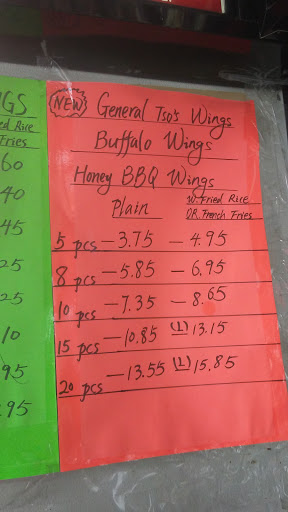 GS
ed Rice
Fries
60
40
45
25
25
10
95
.95
NEW General Tso's Wings
Buffalo Wings
Honey BBQ Wings
Plain W. Fried Rice
OR. French Fries
5 pcs - 3.75 - 4.95
8 pcs - 5.85 - 6.95
10 pcs - 7.35 - 8.65
15 pcs - 10.85 (L) 13.15
20 pcs - 13.55 (L) 15.85